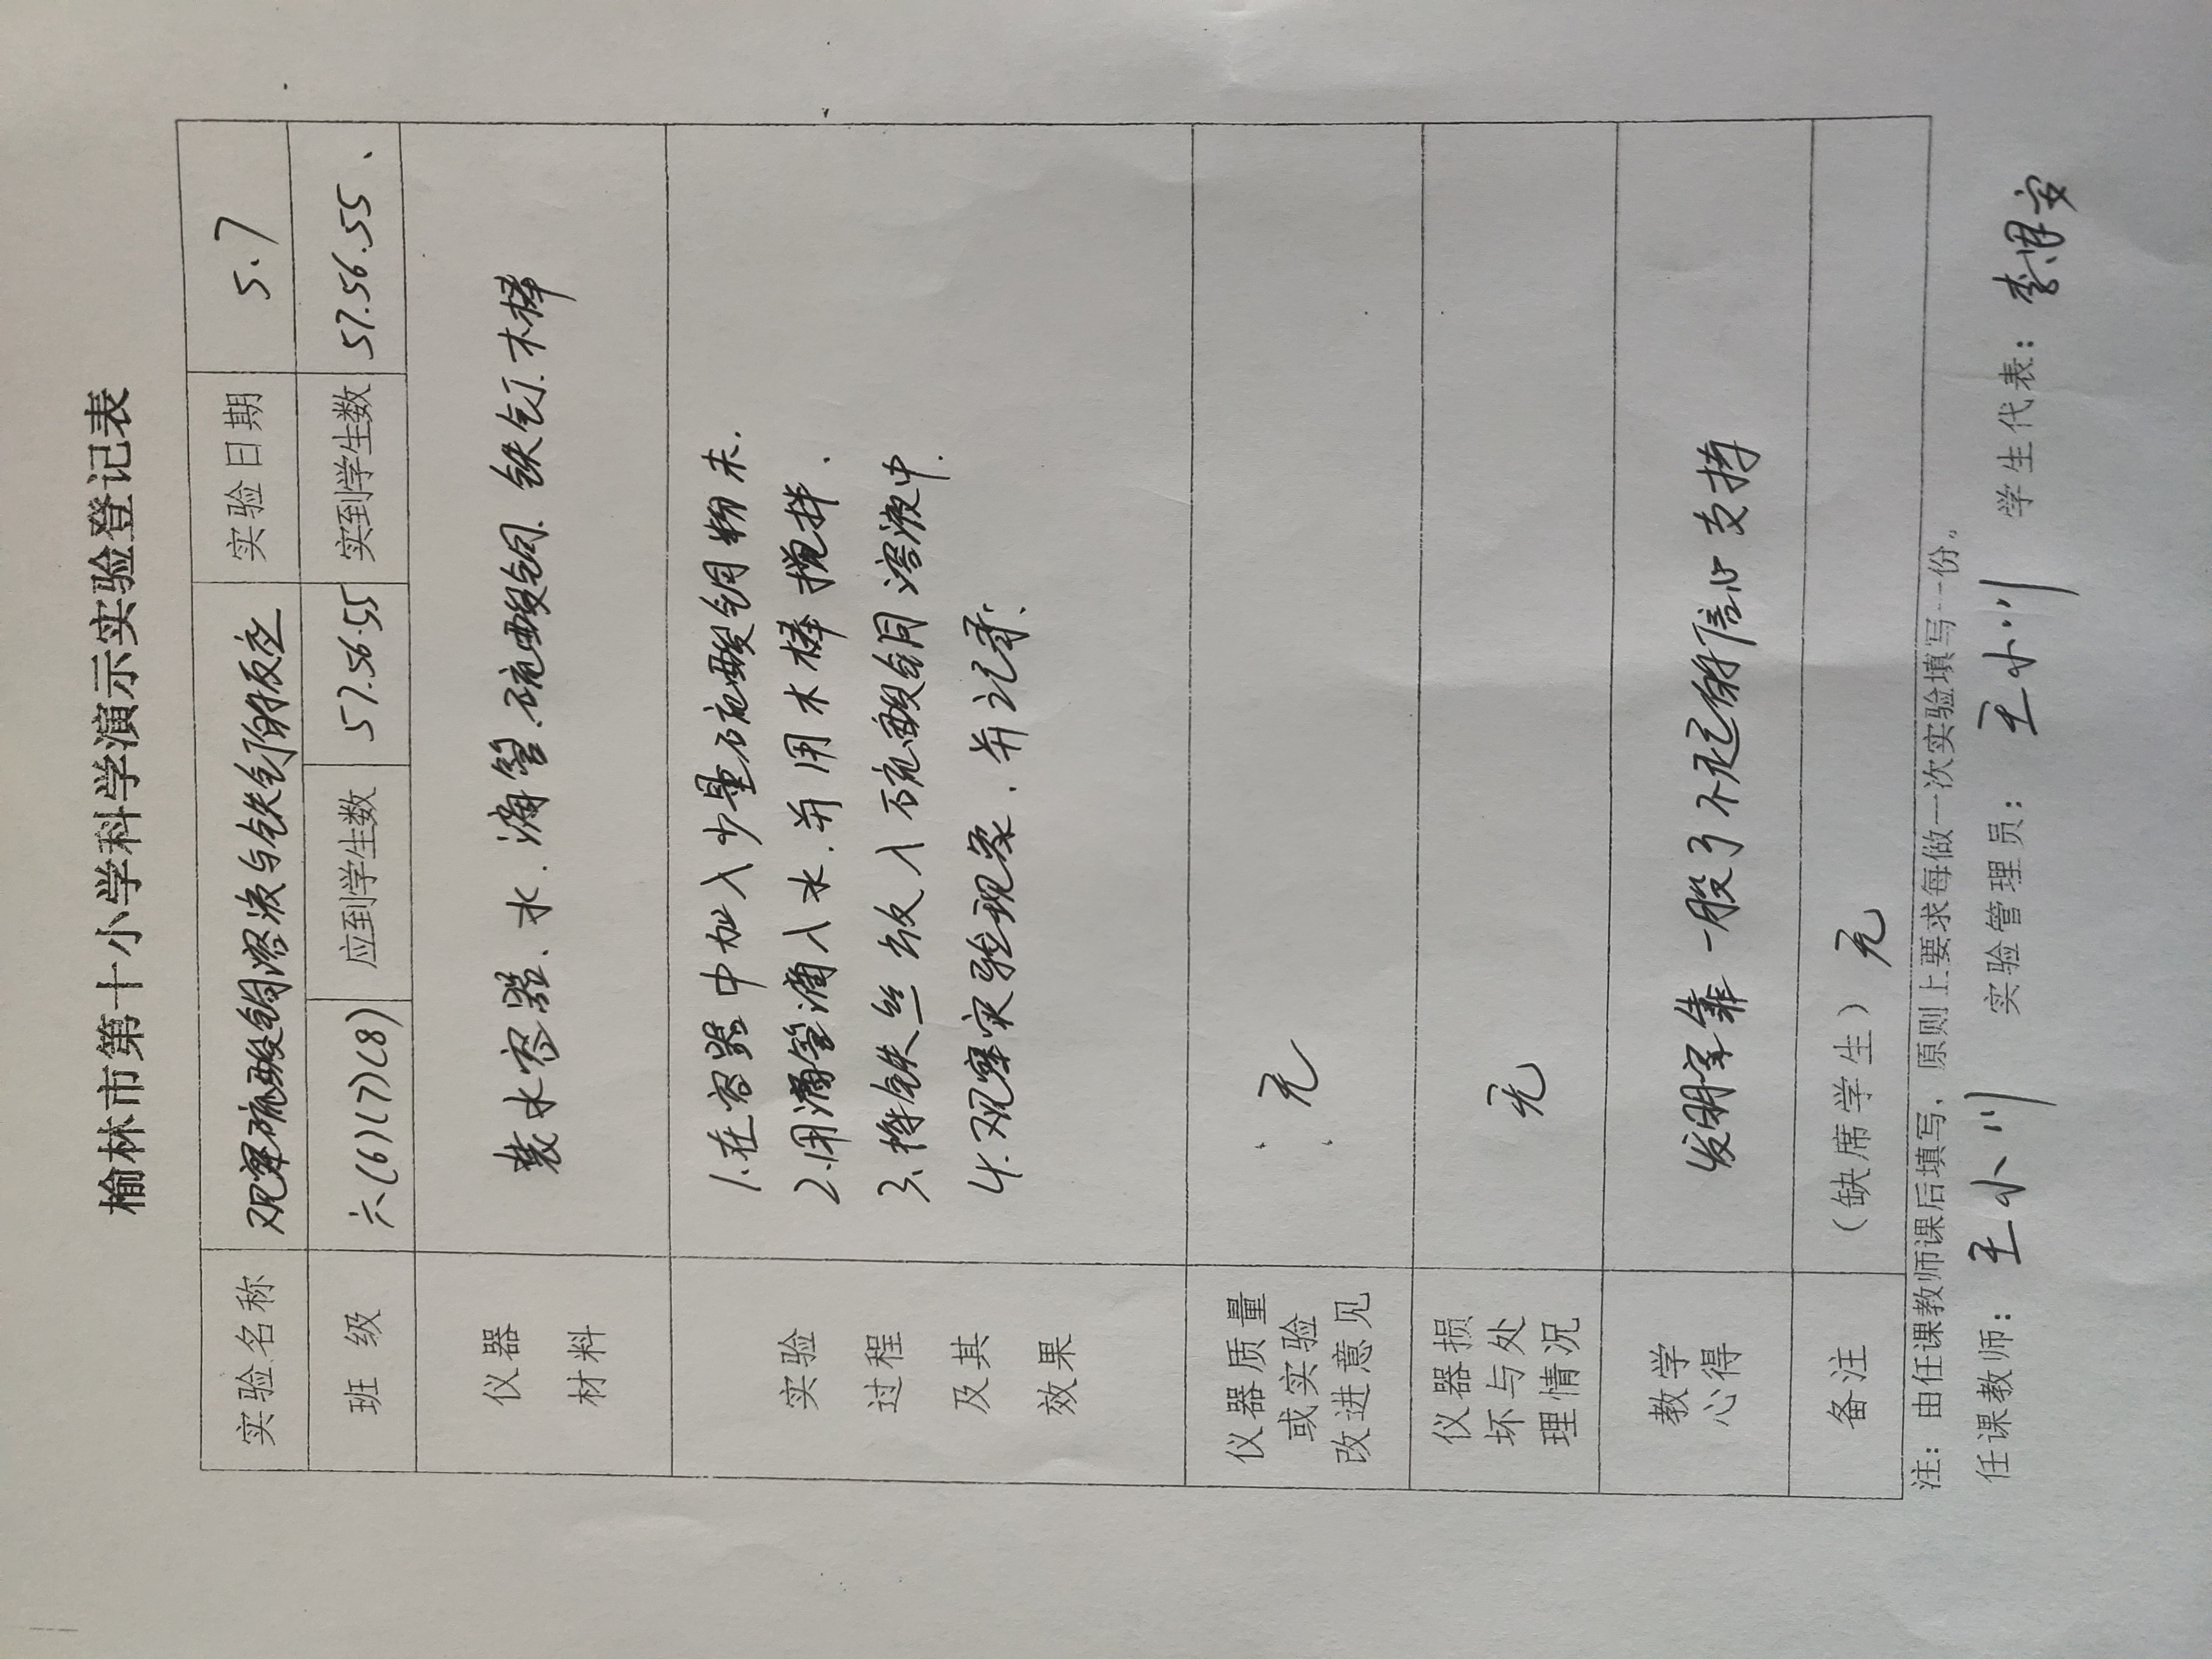 榆林市第十小学科学演示实验登记表
实验名称 观察硫酸铜溶液与铁钉的反应 实验日期 5.7
班 级 六(6)(7)(8) 应到学生数 57.56.55 实到学生数 57.56.55、
仪器 材料 装水容器、水、滴管、硫酸铜、铁钉、木棒
实验 过程 及其 效果
1.在容器中加入少量硫酸铜粉末.
2.用滴管滴入水.并用木棒搅拌.
3.将铁丝放入硫酸铜溶液中.
4.观察实验现象.并记录.
仪器质量 或实验 改进意见 无
仪器损 坏与处 理情况 无
教学 心得 发明家靠一股了不起的信心支持
备注 (缺席学生) 无
注：由任课教师课后填写，原则上要求每做一次实验填写一份。
任课教师： 王小川 实验管理员： 王小川 学生代表： 李安